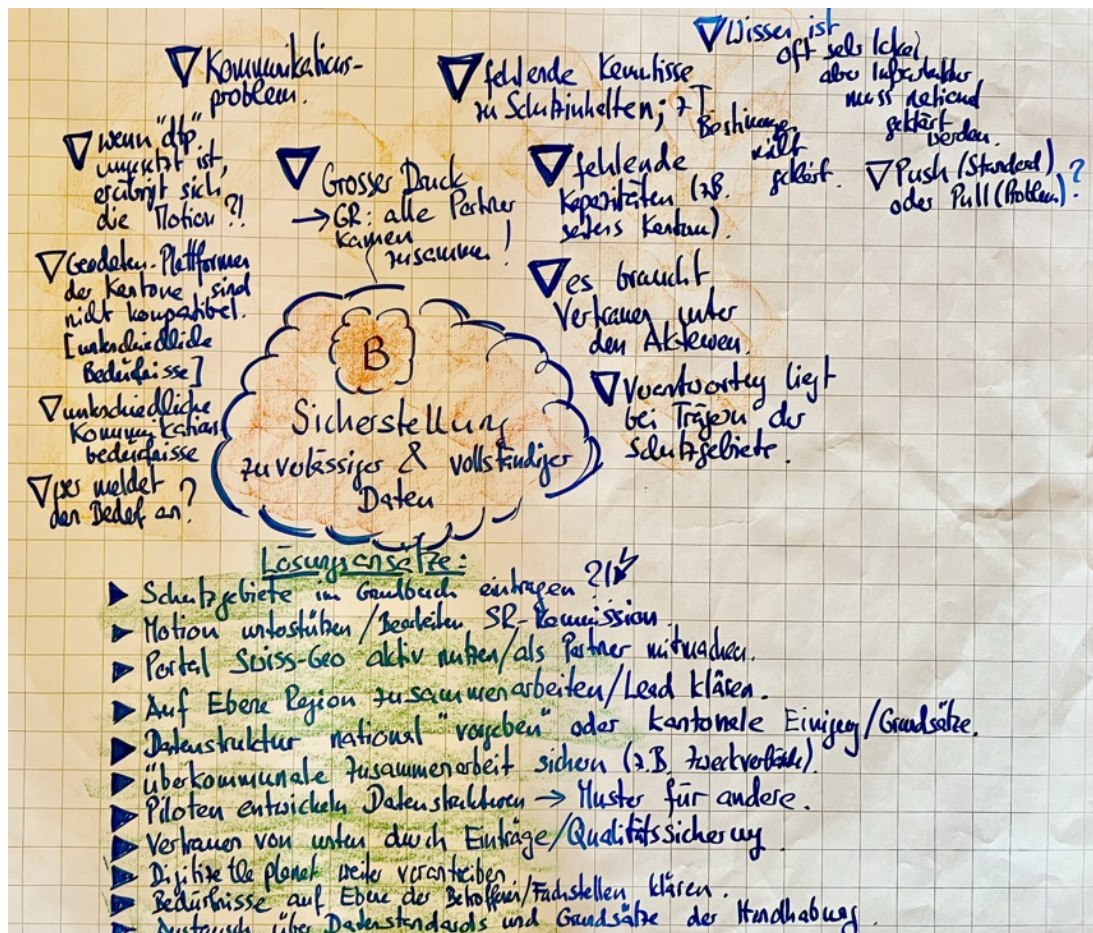 Kommunikations-
problem.
fehlende Kenntnisse
zu Schutzinhalten; z T
Bestimmg.
nicht
geklärt.
Wissen ist
oft sehr lokal,
aber Infrastruktur
muss national
geklärt
werden.
wenn "dtp"
umgesetzt ist,
erübrigt sich
die Motion ?!
Grosser Druck
→ GR: alle Partner
kamen
zusammen!
fehlende
Kapazitäten (z.B.
seitens Kanton).
Push (Standard)
oder Pull (Problem)?
Geodaten-Plattformen
der Kantone sind
nicht kompatibel.
[unterschiedliche
Bedürfnisse]
es braucht
Vertrauen unter
den Akteuren.
unterschiedliche
Kommunikations
bedürfnisse
Verantwortg liegt
bei Trägern der
Schutzgebiete.
wer meldet
den Bedarf an?
B
Sicherstellung
zuverlässiger & vollständiger
Daten
Lösungsansätze:
Schutzgebiete im Grundbuch eintragen ?!
Motion unterstützen/Bearbeiten SR-Kommission.
Portal Swiss-Geo aktiv nutzen/als Partner mitmachen.
Auf Ebene Region zusammenarbeiten/Lead klären.
Datenstruktur national "vorgeben" oder kantonale Einigung/Grundsätze.
überkommunale Zusammenarbeit sichern (z.B. Zweckverbände).
Piloten entwickeln Datenstrukturen → Muster für andere.
Vertrauen von unten durch Einträge/Qualitätssicherung
Digitize the planet weiter vorantreiben.
Bedürfnisse auf Ebene der Betroffenen/Fachstellen klären.
Austausch über Datenstandards und Grundsätze der Handhabung.